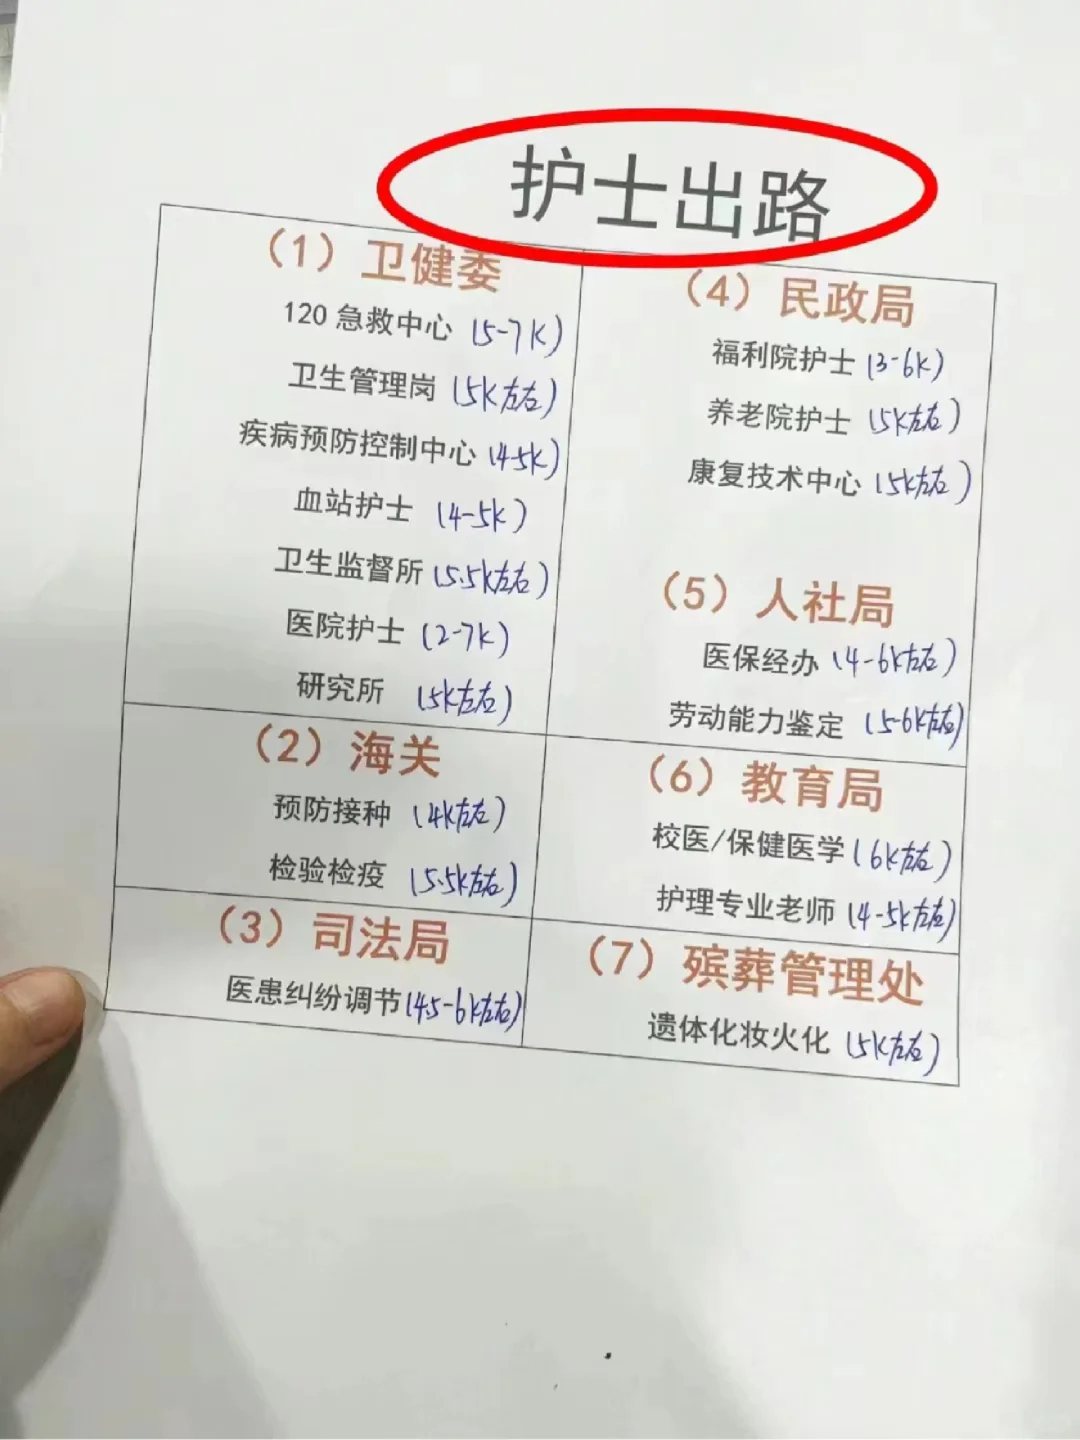 护士出路
（1）卫健委
120 急救中心 (5-7K)
卫生管理岗 (5K左右)
疾病预防控制中心 (4-5K)
血站护士 (4-5K)
卫生监督所 (5.5K左右)
医院护士 (2-7K)
研究所 (5K左右)
（2）海关
预防接种 (4K左右)
检验检疫 (5.5K左右)
（3）司法局
医患纠纷调节(4.5-6K左右)
（4）民政局
福利院护士 (3-6K)
养老院护士 (5K左右)
康复技术中心 (5K左右)
（5）人社局
医保经办 (4-6K左右)
劳动能力鉴定 (5-6K左右)
（6）教育局
校医/保健医学 (6K左右)
护理专业老师 (4-5K左右)
（7）殡葬管理处
遗体化妆火化 (5K左右)